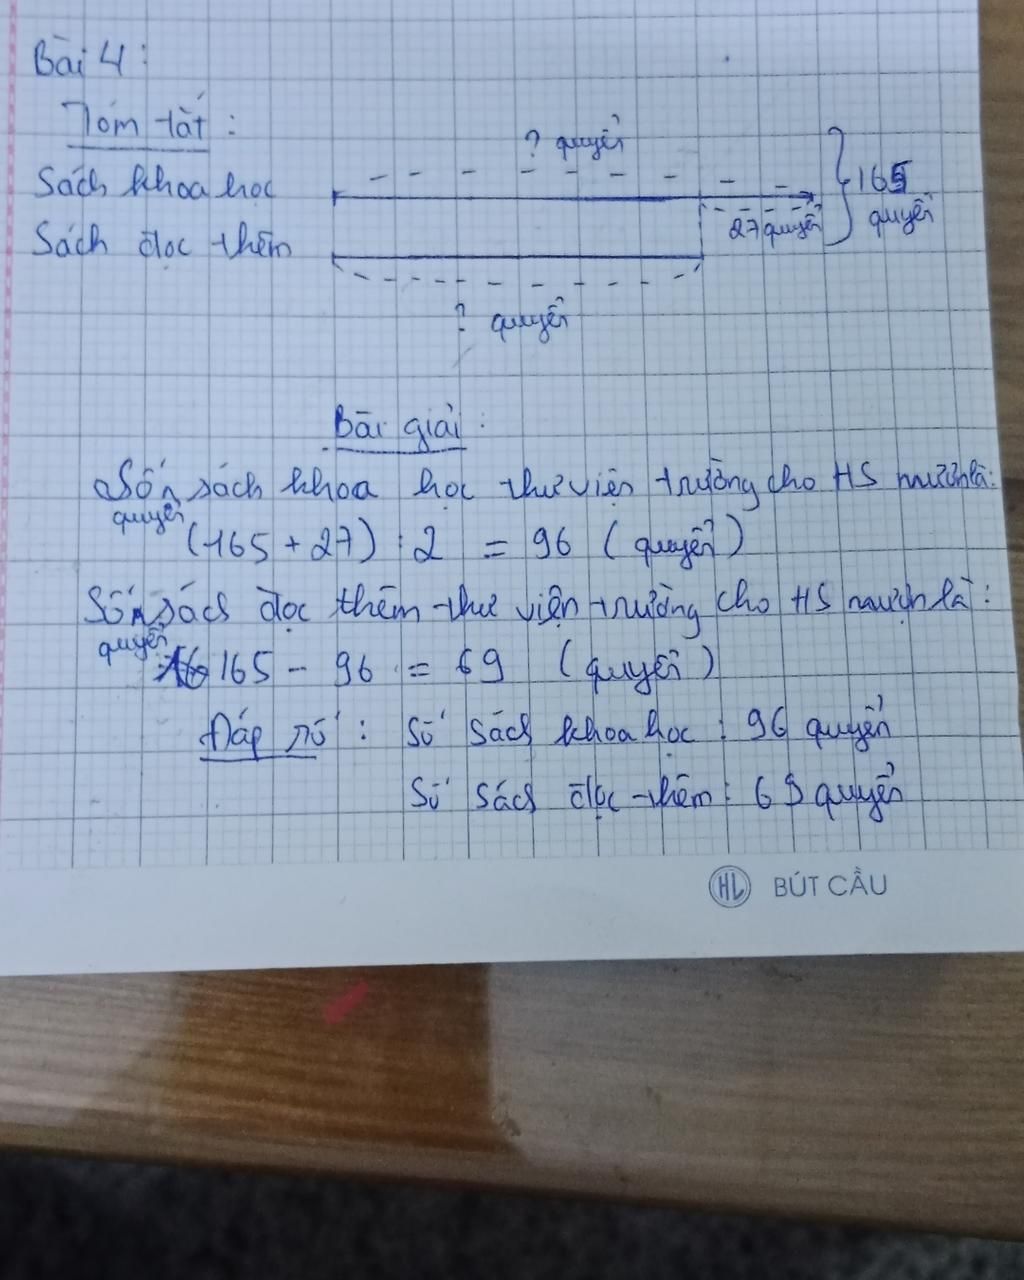 Bài 4:
Tóm tắt:
? quyển
Sách khoa học
165
27 quyển
quyển
Sách đọc thêm
? quyển
Bài giải:
Số sách khoa học thư viện trường cho HS mượn là:
quyển
(165 + 27) : 2 = 96 (quyển)
Số sách đọc thêm thư viện trường cho HS mượn là:
quyển
165 - 96 = 69 (quyển)
Đáp số: Số sách khoa học: 96 quyển
Số sách đọc thêm: 69 quyển
HL BÚT CẦU